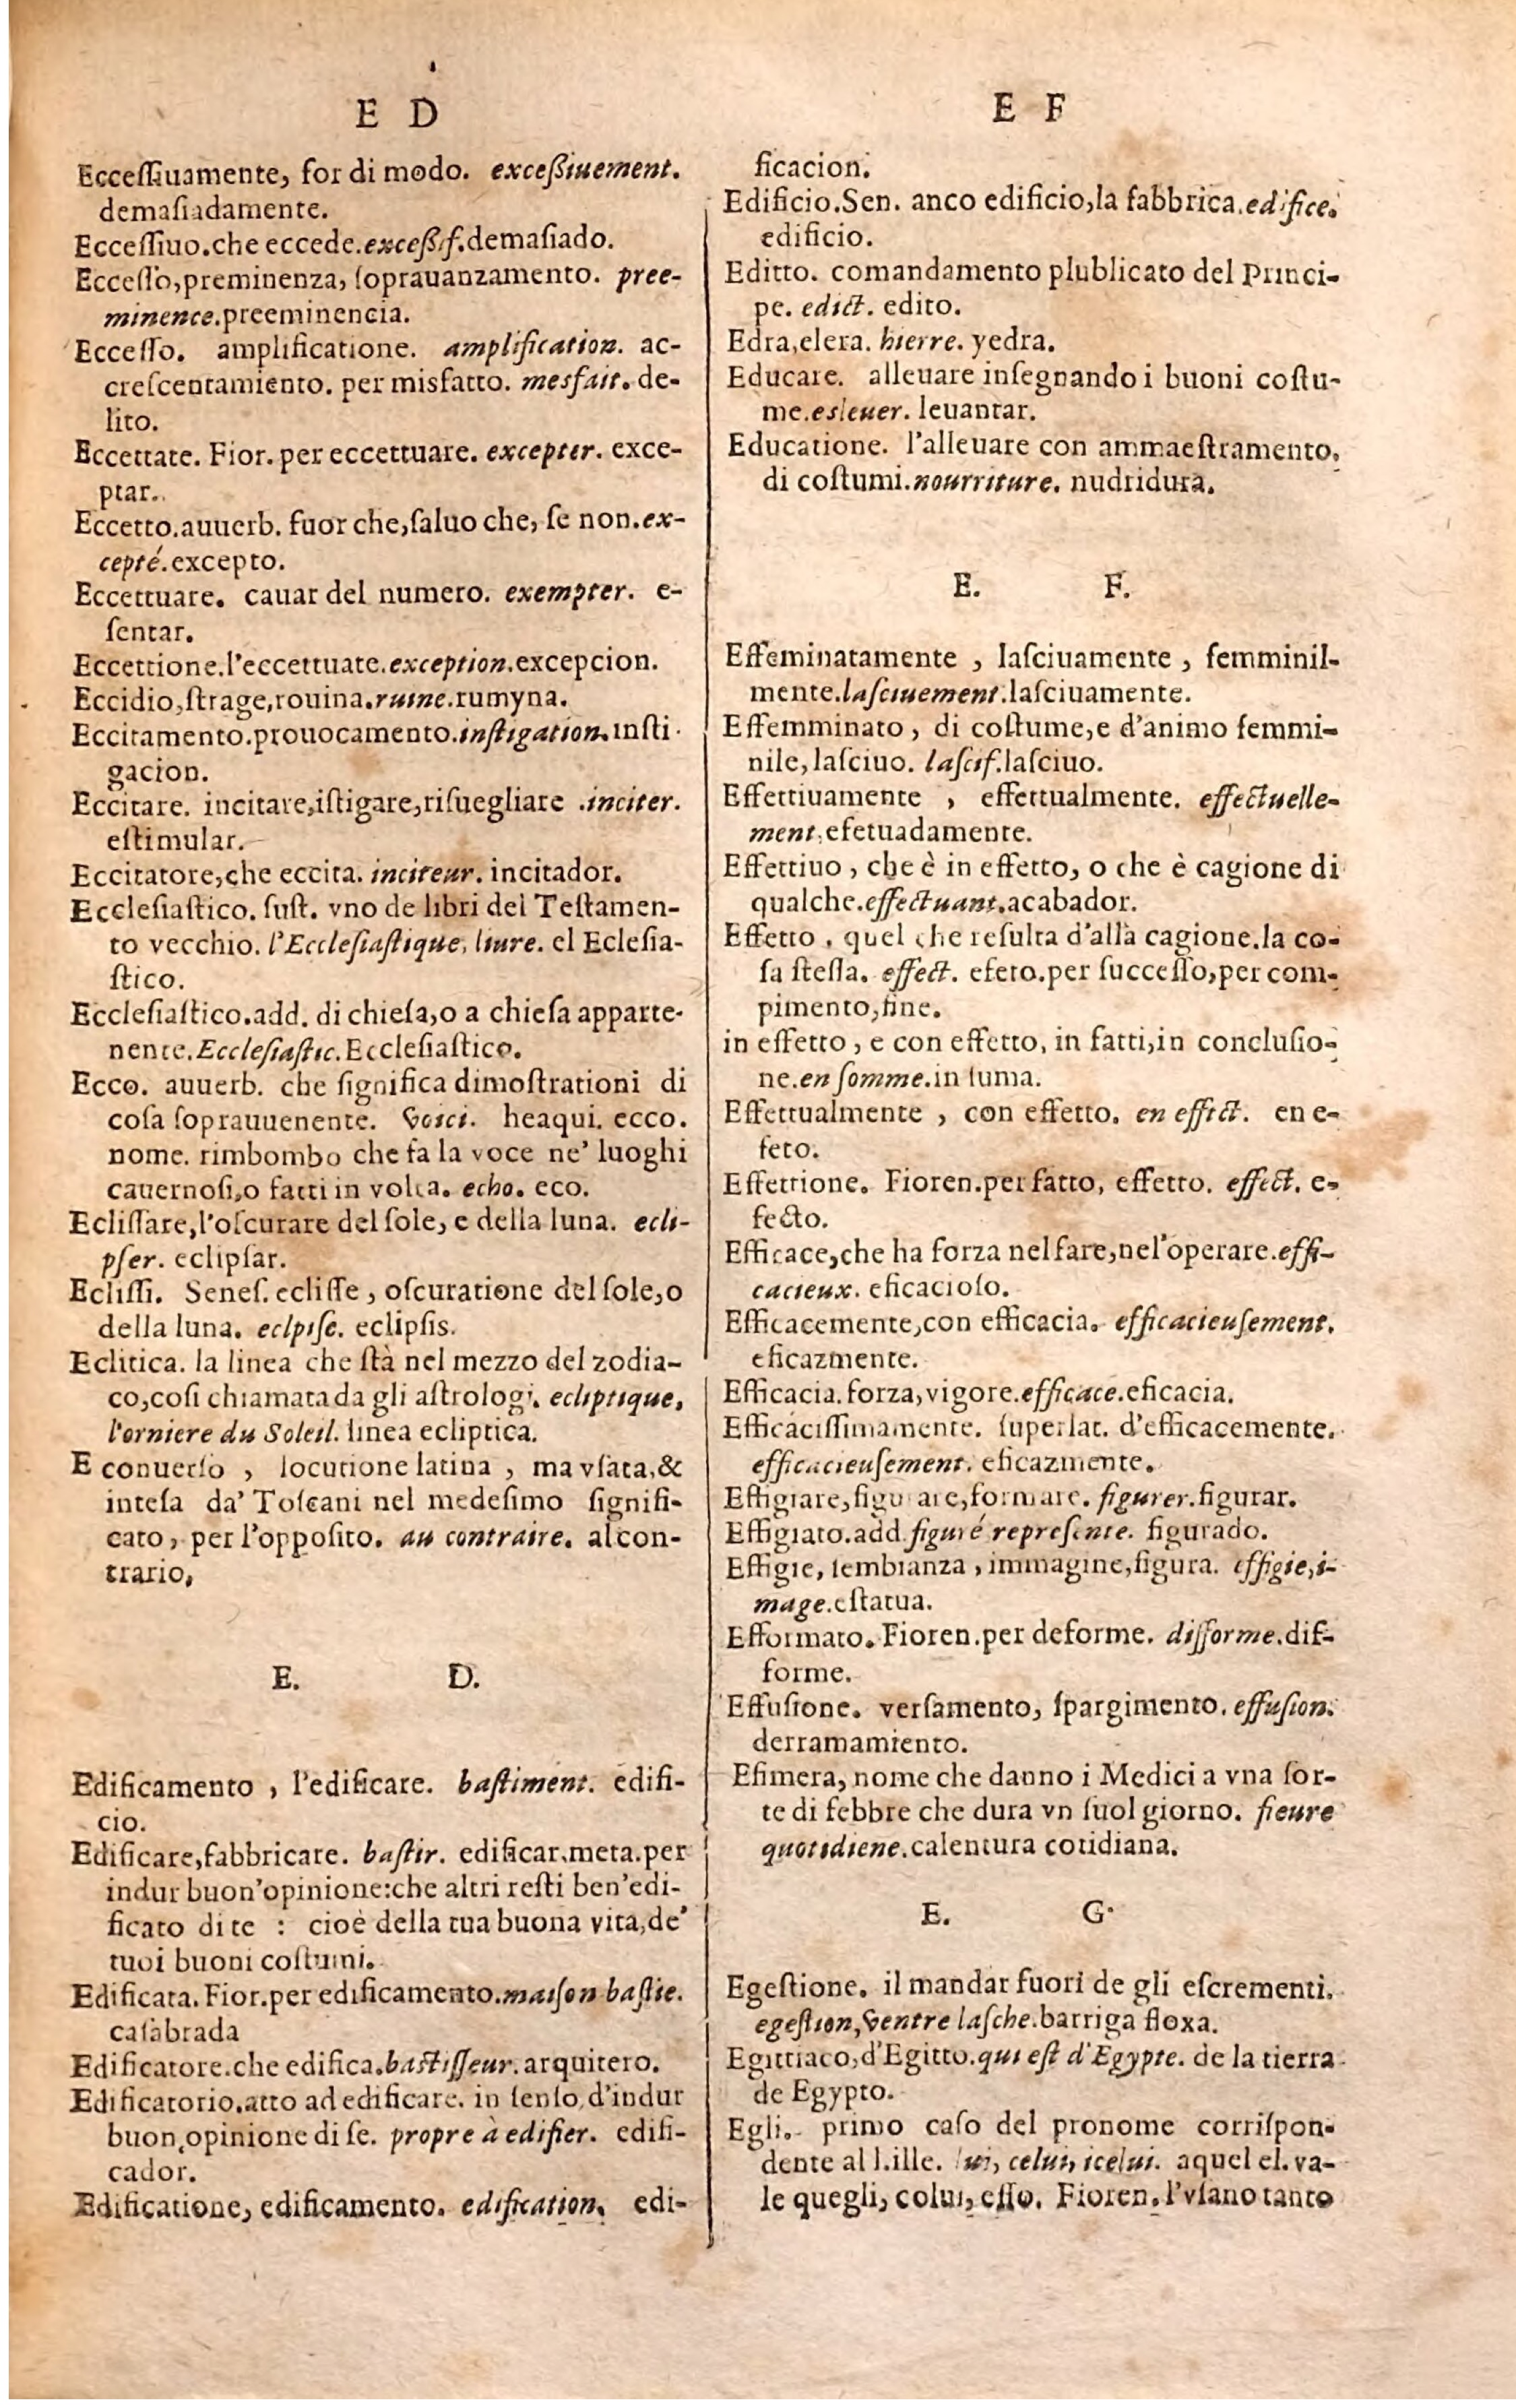 E D
Ecceſſiuamente, for di modo. exceßiuement.
demaſiadamente.
Ecceſſiuo.che eccede.exceßif.demaſiado.
Ecceſſo,preminenza, ſoprauanzamento. pree-
minence.preeminencia.
Ecceſſo. amplificatione. amplification. ac-
creſcentamiento. per misfatto. mesfait. de-
lito.
Eccettate. Fior. per eccettuare. excepter. exce-
ptar.
Eccetto.auuerb. fuor che,ſaluo che, ſe non.ex-
cepté.excepto.
Eccettuare. cauar del numero. exempter. e-
ſentar.
Eccettione.l'eccettuate.exception.excepcion.
Eccidio,ſtrage,rouina.ruine.rumyna.
Eccitamento.prouocamento.inſtigation.inſti-
gacion.
Eccitare. incitare,iſtigare,riſuegliare .inciter.
eſtimular.
Eccitatore,che eccita. inciteur. incitador.
Eccleſiaſtico. ſuſt. vno de libri del Teſtamen-
to vecchio. l'Eccleſiaſtique, liure. el Ecleſia-
ſtico.
Eccleſiaſtico.add. di chieſa,o a chieſa apparte-
nente.Eccleſiaſtic.Eccleſiaſtico.
Ecco. auuerb. che ſignifica dimoſtrationi di
coſa ſoprauuenente. Voici. heaqui. ecco.
nome. rimbombo che fa la voce ne' luoghi
cauernoſi,o fatti in volta. echo. eco.
Ecliſſare,l'oſcurare del ſole, e della luna. ecli-
pſer. eclipſar.
Ecliſſi. Seneſ. ecliſſe, oſcuratione del ſole,o
della luna. eclpiſe. eclipſis.
Eclitica. la linea che ſtà nel mezzo del zodia-
co,coſi chiamata da gli aſtrologi. ecliptique,
l'orniere du Soleil. linea ecliptica.
E conuerſo , locutione latina , ma vſata,&
inteſa da' Toſcani nel medeſimo ſignifi-
cato, per l'oppoſito. au contraire. al con-
trario,
E. D.
Edificamento , l'edificare. baſtiment. edifi-
cio.
Edificare,fabbricare. baſtir. edificar.meta.per
indur buon'opinione:che altri reſti ben'edi-
ficato di te : cioè della tua buona vita,de'
tuoi buoni coſtumi.
Edificata. Fior.per edificamento.maiſon baſtie.
caſàbrada
Edificatore.che edifica.baſtiſſeur.arquitero.
Edificatorio.atto ad edificare. in ſenſo d'indur
buon opinione di ſe. propre à edifier. edifi-
cador.
Edificatione, edificamento. edification. edi-
E F
ficacion.
Edificio.Sen. anco edificio,la fabbrica.edifice.
edificio.
Editto. comandamento plublicato del Princi-
pe. edict. edito.
Edra,elera. hierre. yedra.
Educare. alleuare inſegnando i buoni coſtu-
me.esleuer. leuantar.
Educatione. l'alleuare con ammaeſtramento,
di coſtumi.nourriture. nudridura.
E. F.
Effeminatamente , laſciuamente , femminil-
mente.laſciuement.laſciuamente.
Effemminato, di coſtume,e d'animo femmi-
nile, laſciuo. laſcif.laſciuo.
Effettiuamente , effettualmente. effectuelle-
ment.efetuadamente.
Effettiuo , che è in effetto, o che è cagione di
qualche.effectuant.acabador.
Effetto . quel che reſulta d'alla cagione.la co-
ſa ſteſſa. effect. efeto.per ſucceſſo,per com-
pimento,fine.
in effetto , e con effetto, in fatti,in concluſio-
ne.en ſomme.in ſuma.
Effettualmente , con effetto. en effect. en e-
feto.
Effettione. Fioren.per fatto, effetto. effect. e-
fecto.
Efficace,che ha forza nel fare,nel'operare.effi-
cacieux. eficacioſo.
Efficacemente,con efficacia. efficacieuſement.
eficazmente.
Efficacia. forza,vigore.efficace.eficacia.
Efficaciſſimamente. ſuperlat. d'efficacemente.
efficacieuſement. eficazmente.
Effigiare,figurare,formare. figurer.figurar.
Effigiato.add.figuré repreſente. figurado.
Effigie, ſembianza , immagine,figura. effigie,i-
mage.eſtatua.
Efformato. Fioren.per deforme. difforme.dif-
forme.
Effuſione. verſamento, ſpargimento. effuſion.
derramamiento.
Efimera, nome che danno i Medici a vna ſor-
te di febbre che dura vn ſuol giorno. fieure
quotidiene.calentura cotidiana.
E. G.
Egeſtione. il mandar fuori de gli eſcrementi.
egeſtion,Ventre laſche.barriga floxa.
Egittiaco,d'Egitto.qui eſt d'Egypte. de la tierra
de Egypto.
Egli. primo caſo del pronome corriſpon-
dente al l.ille. lui, celui, icelui. aquel el. va-
le quegli, colui, eſſo. Fioren. l'vſano tanto